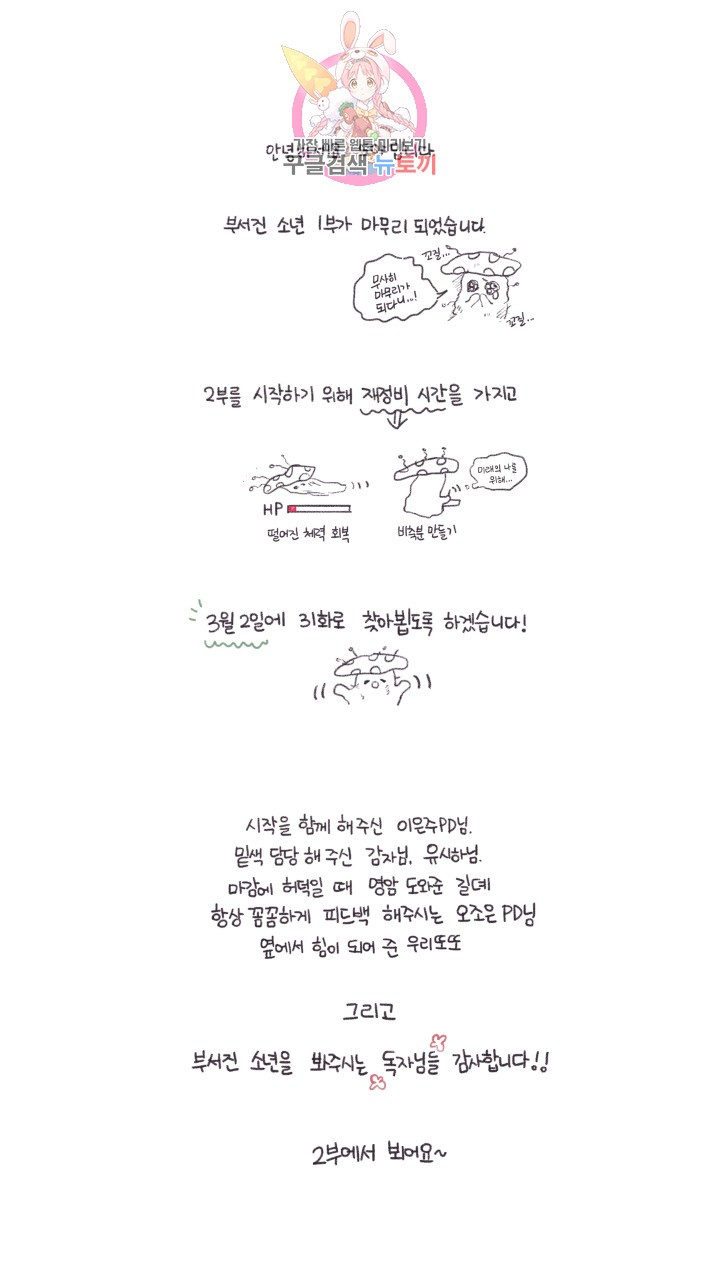 가장 빠른 웹툰 미리보기
구글검색 뉴토끼
부서진 소년 1부가 마무리 되었습니다.
꼬질...
무사히
마무리가
되다니...!
꼬질...
2부를 시작하기 위해 재정비 시간을 가지고
미래의 나를
위해...
HP
떨어진 체력 회복
비축분 만들기
3월 2일에 31화로 찾아뵙도록 하겠습니다!
시작을 함께 해주신 이은주PD님.
밑색 담당 해주신 감자님, 유시하님.
마감에 허덕일 때 명암 도와준 길데
항상 꼼꼼하게 피드백 해주시는 오조은PD님
옆에서 힘이 되어 준 우리또또
그리고
부서진 소년을 봐주시는 독자님들 감사합니다!!
2부에서 뵈어요~